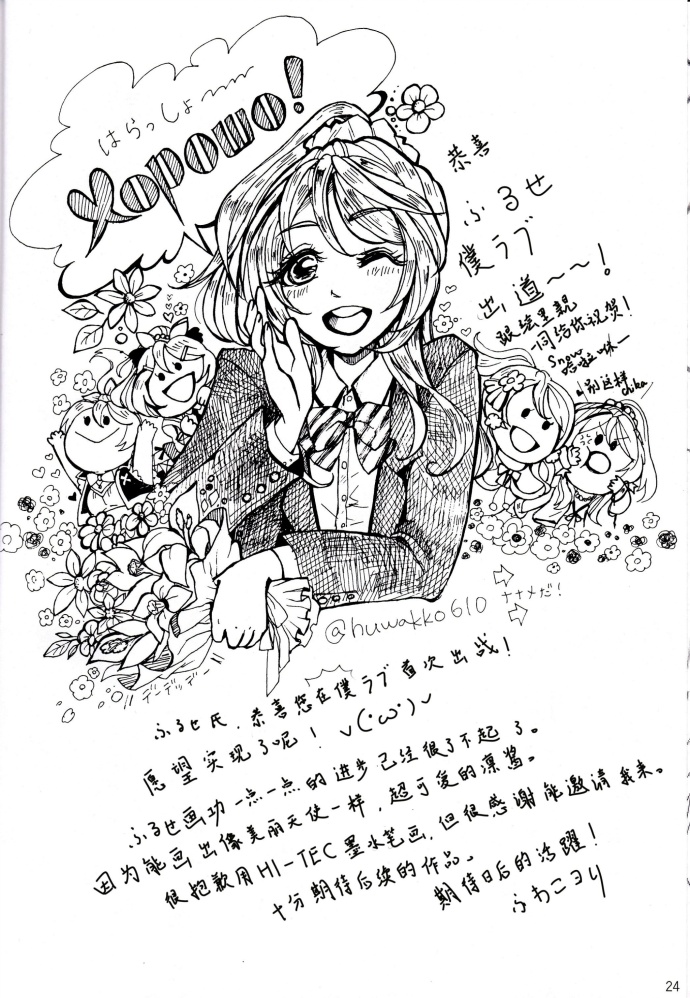 はらっしょ〜
Хорошо!
恭喜
ふるせ
僕ラブ
出道〜〜!
跟绘里亲
一同给你祝贺!
Snow
别这样
@huwakko610
ナナメだ!
デーデッデー!!
ふるせ氏,恭喜您在僕ラブ首次出战!
愿望实现了呢! v(・ω・)v
ふるせ画功一点一点的进步已经很了不起了。
因为能画出像美丽天使一样,超可爱的凛酱。
很抱歉用HI-TEC墨水笔画,但很感谢能邀请我来。
十分期待后续的作品。
期待日后的活躍!
ふわこより
24